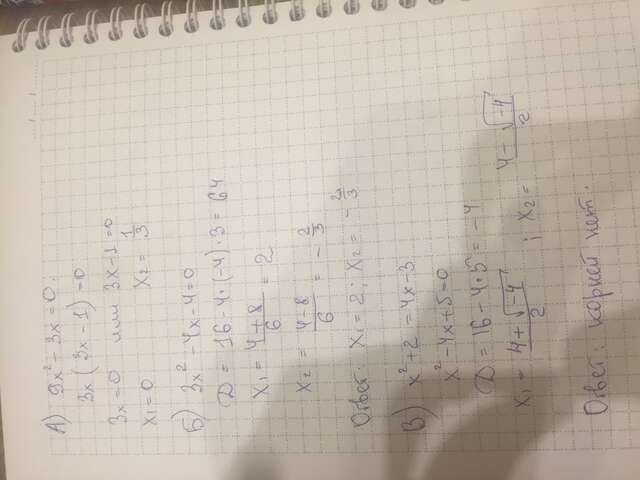 А) 9x² - 3x = 0.
3x(3x - 1) = 0
3x = 0 или 3x - 1 = 0
x₁ = 0 x₂ = 1/3
Б) 3x² - 4x - 4 = 0
D = 16 - 4·(-4)·3 = 64
x₁ = (4+8)/6 = 2
x₂ = (4-8)/6 = -2/3
Ответ: x₁ = 2; x₂ = -2/3
В) x² + 2 = 4x - 3
x² - 4x + 5 = 0
D = 16 - 4·5 = -4
x₁ = (4+√-4)/2 ; x₂ = (4-√-4)/2
Ответ: корней нет.